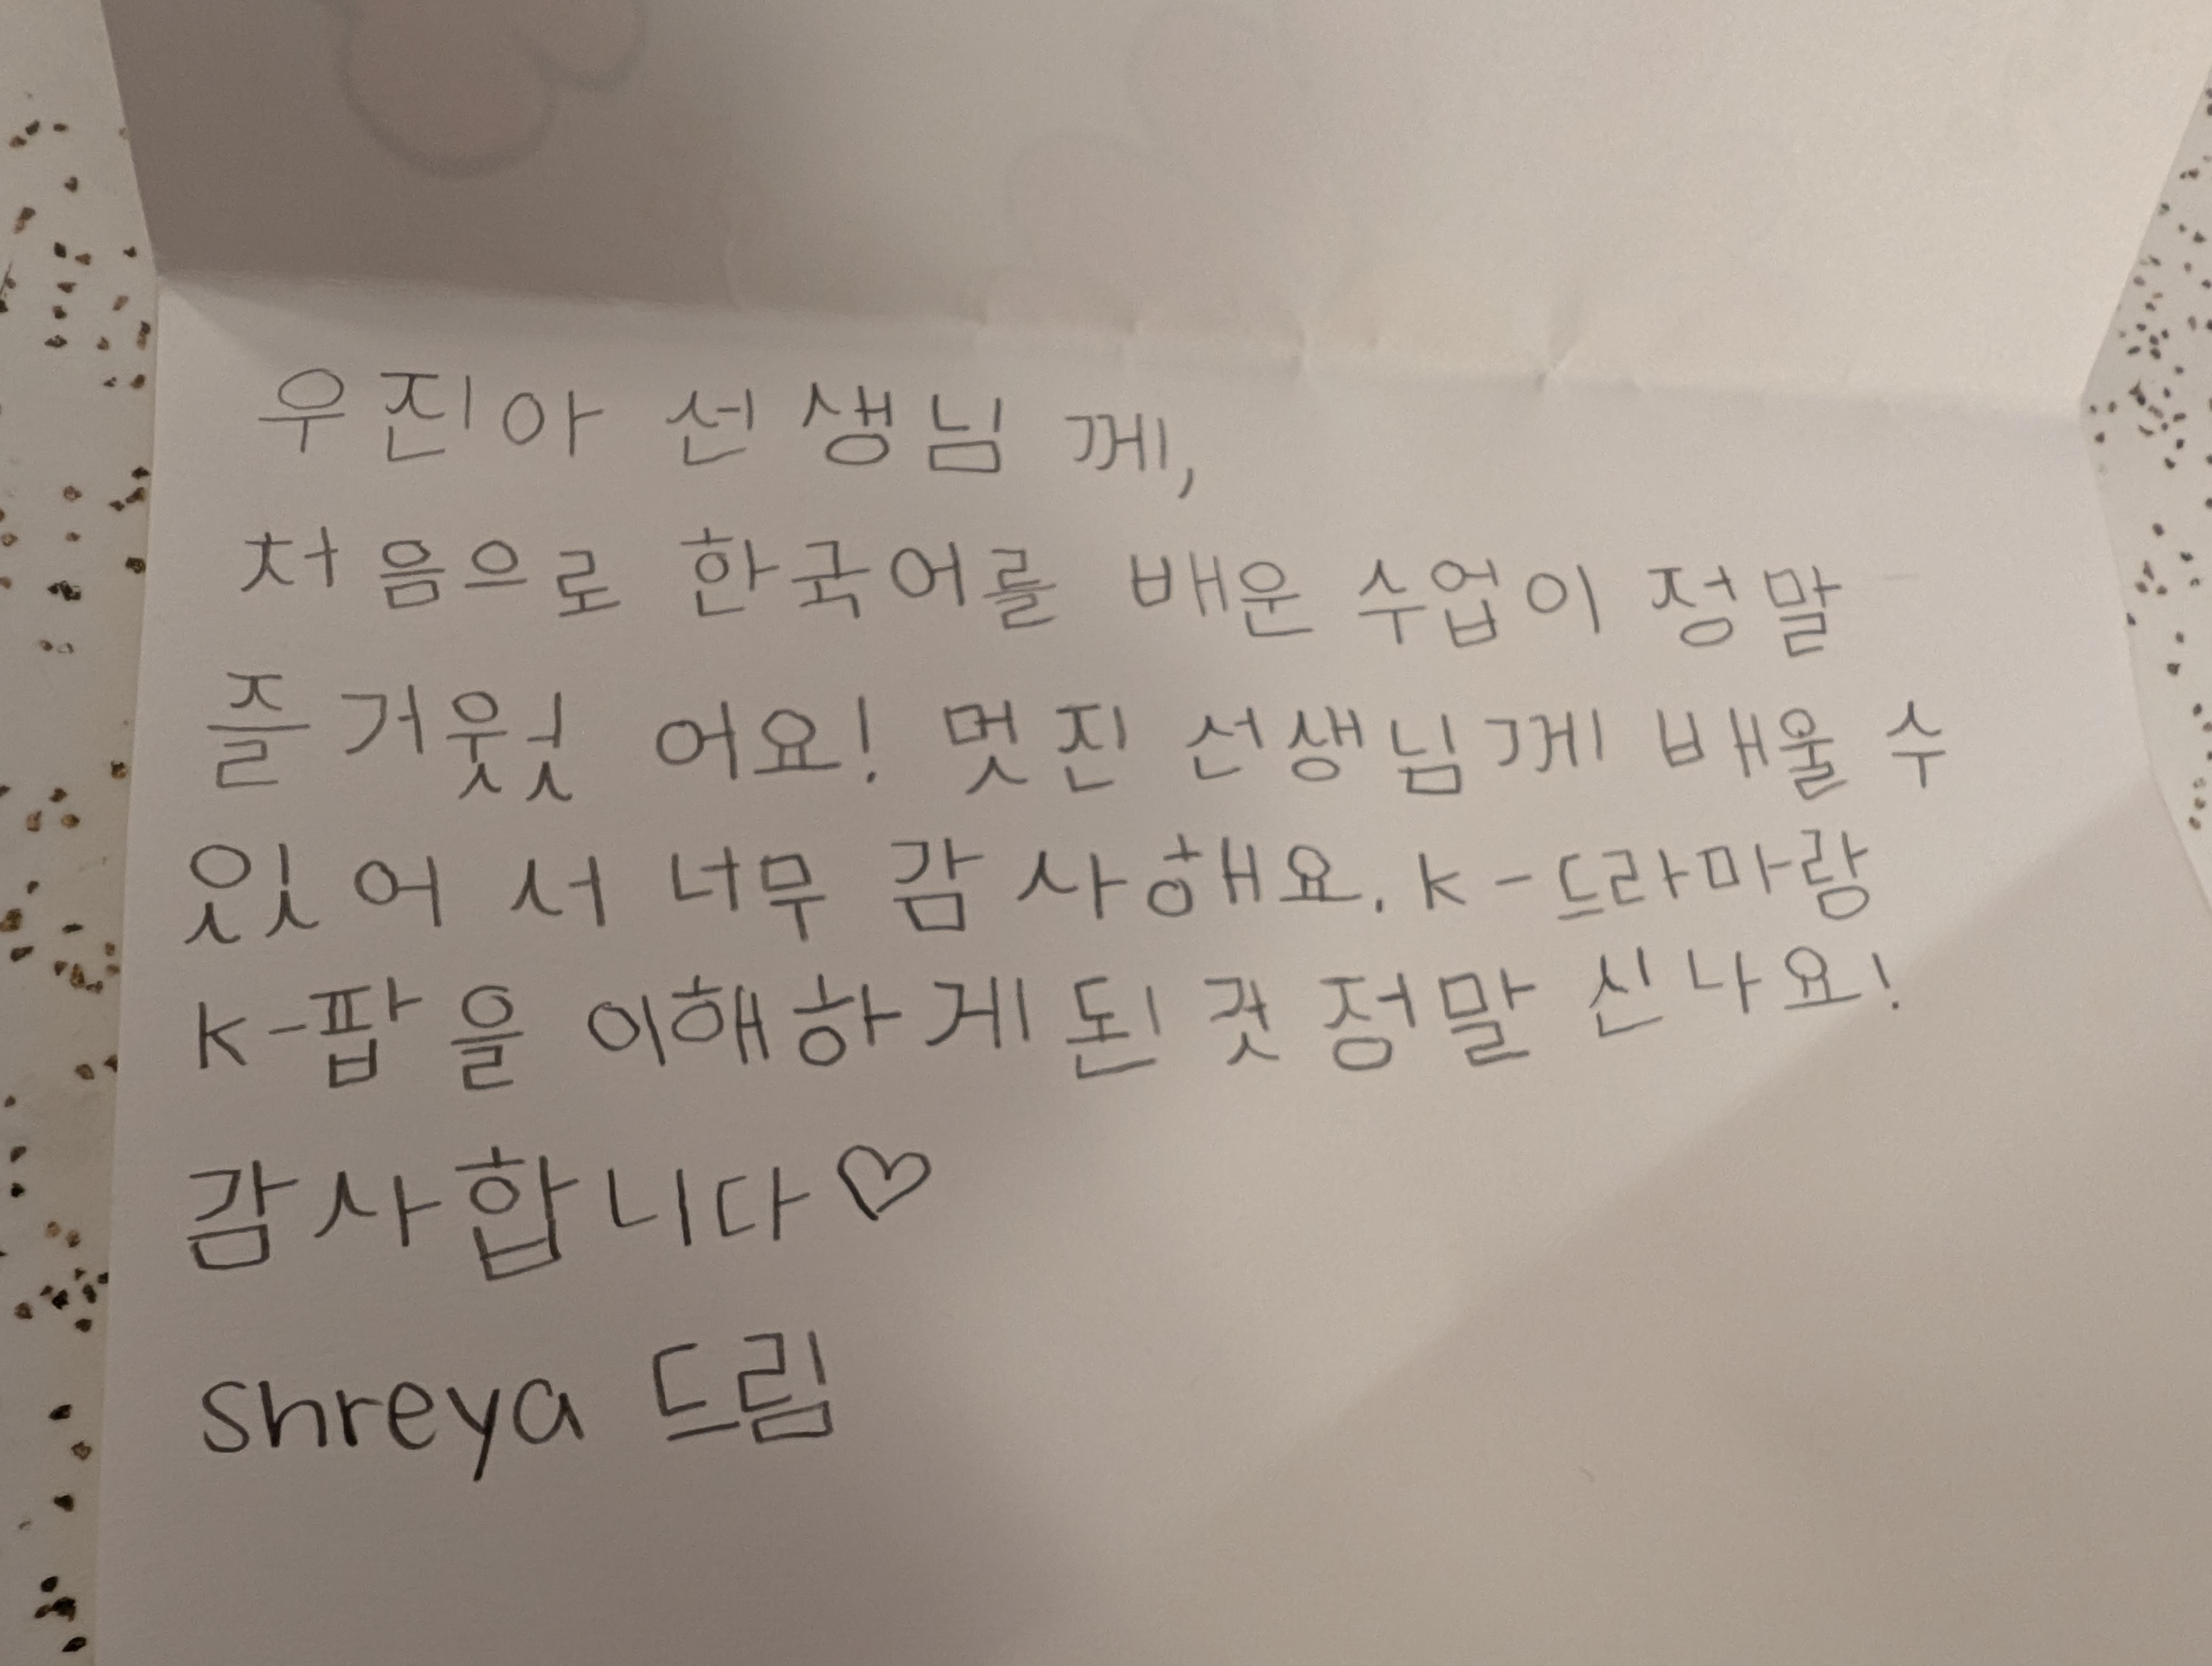 우진아 선생님 께,
처음으로 한국어를 배운 수업이 정말
즐거웠 어요! 멋진 선생님께 배울 수
있어서 너무 감사해요. K-드라마랑
K-팝을 이해하게 된 것 정말 신나요!
감사합니다♡
Shreya 드림